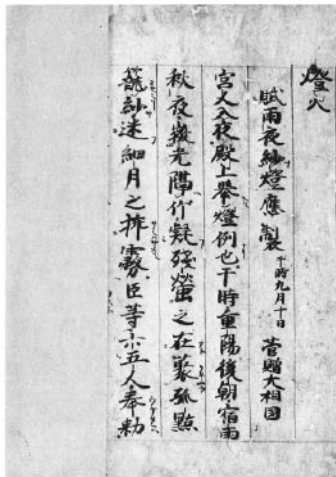 燈火
賦雨夜紗燈應製 于時九月十日 菅贈大相国
宮人入夜殿上擧燈例也于時重陽後朝宿雨
秋夜微光隔竹疑残螢之在藂孤點
籠紗迷細月之排霧臣等六五人奉勑